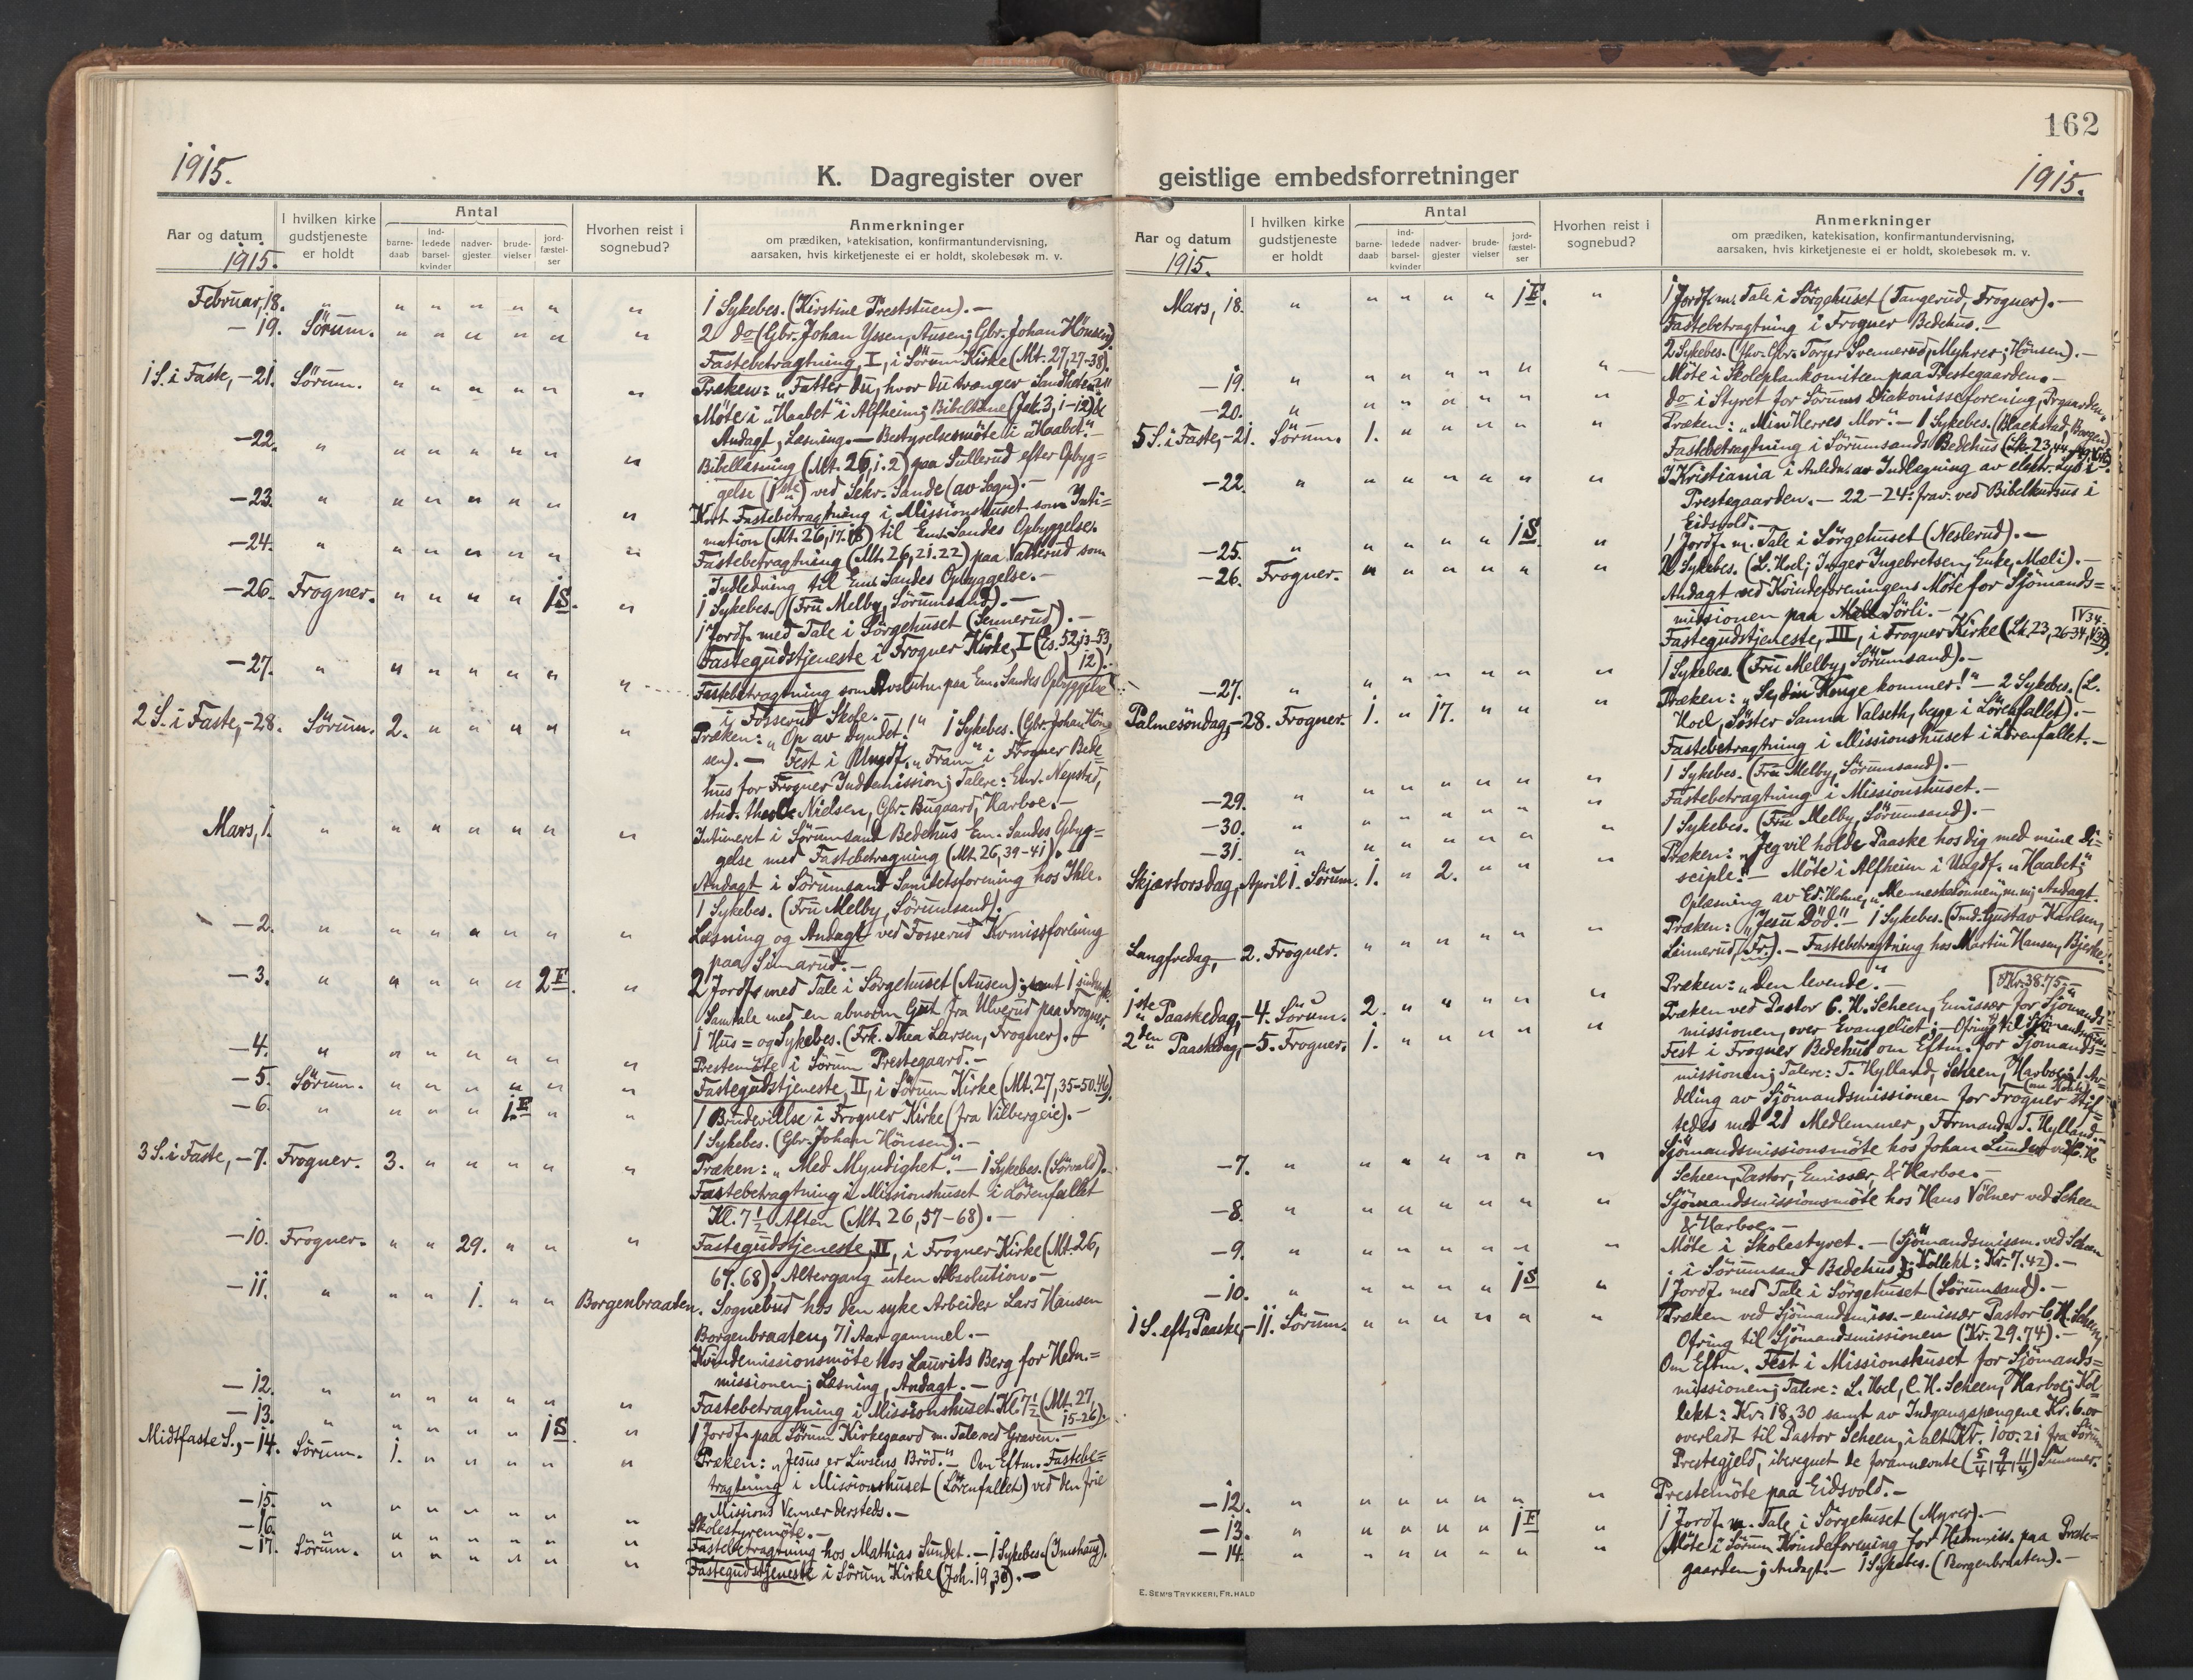 162
1915.
K. Dagregister over
geistlige embedsforretninger
1915.
Aar og datum
1915.
I hvilken kirke
gudstjeneste
er holdt
Antal
barne-
daab
ind-
ledede
barsel-
kvinder
nadver-
gjester
brude-
vielser
jord-
fæstel-
ser
Hvorhen reist i
sognebud?
Anmerkninger
om prædiken, katekisation, konfirmantundervisning,
aarsaken, hvis kirketjeneste ei er holdt, skolebesøk m. v.
Februar, 18. " " " " " " " 1 Sykebes. (Kirstine Preststuen). —
— 19. Sörum. " " " " " " 2 do (Gbr. Johan Yssen, Ausen; Gbr. Johan Hönsen)
Fastebetragtning, I, i Sörum Kirke (Mt. 27, 27-38).
1 S. i Faste, — 21. Sörum. " " " " " " Præken: "Fatter du, hvor du trænger Sandheten?"
Möte i "Haabet" i Alfheim; Bibeltime (Jak. 3, 1-12) &
Andagt, Læsning. — Bestyrelsesmöte i "Haabet". —
— 22. " " " " " " " Bibellæsning (Mt. 26, 1. 2) paa Sullerud efter Opbyg=
gelse (1ste) ved Sekr. Sande (av Sogn). —
— 23. " " " " " " " Kort Fastebetragtning i Missionshuset som Inti=
mation (Mt. 26, 17. 18) til Em. Sandes Opbyggelse.
— 24. " " " " " " " Fastebetragtning (Mt. 26, 21. 22) paa Valterud som
Indledning til Em. Sandes Opbyggelse. —
— 26. Frogner. " " " " 1S. " 1 Sykebes. (Fru Melby, Sörumsand). —
1 Jordf. med Tale i Sörgehuset (Sennerud). —
Fastegudstjeneste i Frogner Kirke, I (Es. 52, 13-53,
12).
— 27. " " " " " " " Fastebetragtning som paa Em. Sandes Opbyggelse
i Fosserud Skole. —
2 S. i Faste, — 28. Sörum. 2. " " " " " Præken: "Op av dyndet!" 1 Sykebes. (Gbr. Johan Hön=
sen). — Fest i Ungdf. "Fram" i Frogner Bede=
hus for Frogner Indremission; Talere: Em. Nepstad,
stud. theol. Nielsen, Gbr. Bugaard, Harboe. —
Mars, 1. " " " " " " " Intimeret i Sörumsand Bedehus Em. Sandes Opbyg=
gelse med Fastebetragning (Mt. 26, 39-41). —
Andagt i Sörumsand Sanitetsforening hos Ihle.
1 Sykebes. (Fru Melby, Sörumsand).
— 2. " " " " " " " Læsning og Andagt ved Fosserud Kvmissforening
paa Simarud. —
— 3. " " " " " 2F. " 2 Jordf. med Tale i Sörgehuset (Ausen); samt 1
Samtale med en abnorm Gut fra Ulverud paa Frogner.
1 Hus= og Sykebes. (Frk. Thea Larsen, Frogner). —
— 4. " " " " " " " Prestemöte i Sörum Prestegaard. —
— 5. Sörum. " " " " " " Fastegudstjeneste, II, i Sörum Kirke (Mt. 27, 35-50. 46)
— 6. " " " " 1F " " 1 Brudevielse i Frogner Kirke (fra Vilbergeie). —
1 Sykebes. (Gbr. Johan Hönsen). —
3 S. i Faste, — 7. Frogner. 3. " " " " " Præken: "Med Myndighet". — 1 Sykebes. (Sörvald). —
Fastebetragtning i Missionshuset i Lörenfallet
Kl. 7½ Aften (Mt. 26, 57-68). —
— 10. Frogner. " " 29. " " " Fastegudstjeneste, II, i Frogner Kirke (Mt. 26,
67. 68); Altergang uten Absolution. —
— 11. " " " 1. " " Borgenbraaten. Sognebud hos den syke Arbeider Lars Hansen
Borgenbraaten, 71 Aar gammel. —
Kvindemissionsmöte hos Laurits Berg for Hedn.=
missionen; Læsning, Andagt. —
— 12. " " " " " " " Fastebetragtning i Missionshuset Kl. 7½ (Mt. 27,
15-26).
— 13. " " " " " 1S " 1 Jordf. paa Sörum Kirkegaard m. Tale ved Graven. —
Midtfaste S., — 14. Sörum. 1. " " " " " Præken: "Jesus er Livsens Bröd." — Om Eftm. Fastebe=
tragtning i Missionshuset (Lörenfallet) ved den frie
Missions Venner dersteds. —
— 15. " " " " " " " Skolestyremöte. —
— 16. " " " " " " " Fastebetragtning hos Mathias Sundet. — 1 Sykebes. (Imshaug).
— 17. Sörum. " " " " " " Fastegudstjeneste i Sörum Kirke (Joh. 19, 30). —
Aar og datum
1915.
I hvilken kirke
gudstjeneste
er holdt
Antal
barne-
daab
ind-
ledede
barsel-
kvinder
nadver-
gjester
brude-
vielser
jord-
fæstel-
ser
Hvorhen reist i
sognebud?
Anmerkninger
om prædiken, katekisation, konfirmantundervisning,
aarsaken, hvis kirketjeneste ei er holdt, skolebesøk m. v.
Mars, 18. " " " " " 1F. " 1 Jordf. m. Tale i Sörgehuset (Tangerud, Frogner). —
Fastebetragtning i Frogner Bedehus. —
2 Sykebes. (fhv. Gbr. Torger Svennerud, Myhrer; Hönsen). —
— 19. " " " " " " " Möte i Skoleplankomiteen paa Prestegaarden. —
— 20. " " " " " " " do i Styret for Sörums Diakonisseforening, Prgaarden.
5 S. i Faste, — 21. Sörum. 1. " " " " " Præken: "Min Herres Mor". — 1 Sykebes. (Blackstad, Borgen)
Fastebetragtning i Sörumsands Bedehus (Lk. 23, 44
— 22. " " " " " " " I Kristiania i Anledn. av Indlegning av elektr. Lys i
Prestegaarden. — 22-24: frav. ved Bibelkursus i
Eidsvold. —
— 25. " " " " " 1S " 1 Jordf. m. Tale i Sörgehuset (Neslerud). —
— 26. Frogner. " " " " " " 2 Sykebes. (L. Hoel; Inger Ingebretsen, Enke, Mæli). —
Andagt ved Kvindeforeningens Möte for Sjömands=
missionen paa Sörli. —
Fastegudstjeneste, III, i Frogner Kirke (Lk. 23, 26-34, V34).
— 27. " " " " " " " 1 Sykebes. (Fru Melby, Sörumsand). —
Palmesöndag, — 28. Frogner. 1. " 17. " " " Præken: "Se, din Konge kommer!" — 2 Sykebes. (L.
Hoel, Söster Sanna Valseth, begge i Lörenfallet). —
Fastebetragtning i Missionshuset i Lörenfallet. —
— 29. " " " " " " " 1 Sykebes. (Fru Melby, Sörumsand). —
— 30. " " " " " " " Fastebetragtning i Missionshuset. —
— 31. " " " " " " " 1 Sykebes. (Fru Melby, Sörumsand). —
Skjærtorsdag, April 1. Sörum. 1. " 2. " " " Præken: "Jeg vil holde Paaske hos dig med mine di=
sciple." — Möte i Alfheim i Ungdf. "Haabet";
Oplæsning av "Mennesksönnen" m. m; Andagt.
Langfredag, — 2. Frogner. " " " " " " Præken: "Jesu Död." — 1 Sykebes. (Smd. Gustav Karlsen,
Linnerud, Fr.). — Fastebetragtning hos Martin Hansen, Bjerke.
1ste Paaskedag, — 4. Sörum. 2. " " " " " Præken: "Den levende." —
Kr. 38.75. —
2den Paaskedag, — 5. Frogner. 1. " " " " " Præken ved Pastor C. H. Scheen, Emissær for Sjömands=
missionen, over Evangeliet; — Ofring til Sjömandsm.
Fest i Frogner Bedehus om Eftm. for Sjömands=
missionen; Talere: T. Hylland, Scheen, Harboe; 1 Av=
deling av Sjömandsmissionen for Frogner stif=
tedes med 21 Medlemmer, Formand T. Hylland. —
— 7. " " " " " " " Sjömandsmissionsmöte hos Johan Lunder ved C. H.
Scheen, Pastor, Emissær, & Harboe. —
— 8. " " " " " " " Sjömandsmissionsmöte hos Hans Völner ved Scheen
& Harboe. —
— 9. " " " " " " " Möte i Skolestyret. — (Sjömandsmissm. ved Scheen
i Sörumsand Bedehus; Kollekt: Kr. 7.42). —
— 10. " " " " " 1S " 1 Jordf. med Tale i Sörgehuset (Sörumsand). —
1 S. eft. Paaske, — 11. Sörum. " " " " " " Præken ved Sjömandsmiss.-emissær Pastor C. H. Scheen;
Ofring til Sjömandsmissionen (Kr. 29.74). —
Om Eftm. Fest i Missionshuset for Sjömands=
missionen; Talere: L. Hoel, C. H. Scheen, Harboe; Kol
lekt: Kr. 18.30 samt av Indgangspengene Kr. 6.00
overladt til Pastor Scheen, i alt Kr. 100.21 fra Sörum
Prestegjeld, iberegnet de forannevnte (5/4, 9/4, 11/4) Summer.
— 12. " " " " " " " Prestemöte paa Eidsvold. —
— 13. " " " " " 1F " 1 Jordf. m. Tale i Sörgehuset (Myrer). —
— 14. " " " " " " " Möte i Sörum Kvindeforening for Hedmiss. paa Preste=
gaarden; Andagt. — 1 Sykebes. (Borgenbraaten). —
E. SEM'S TRYKKERI, FR. HALD